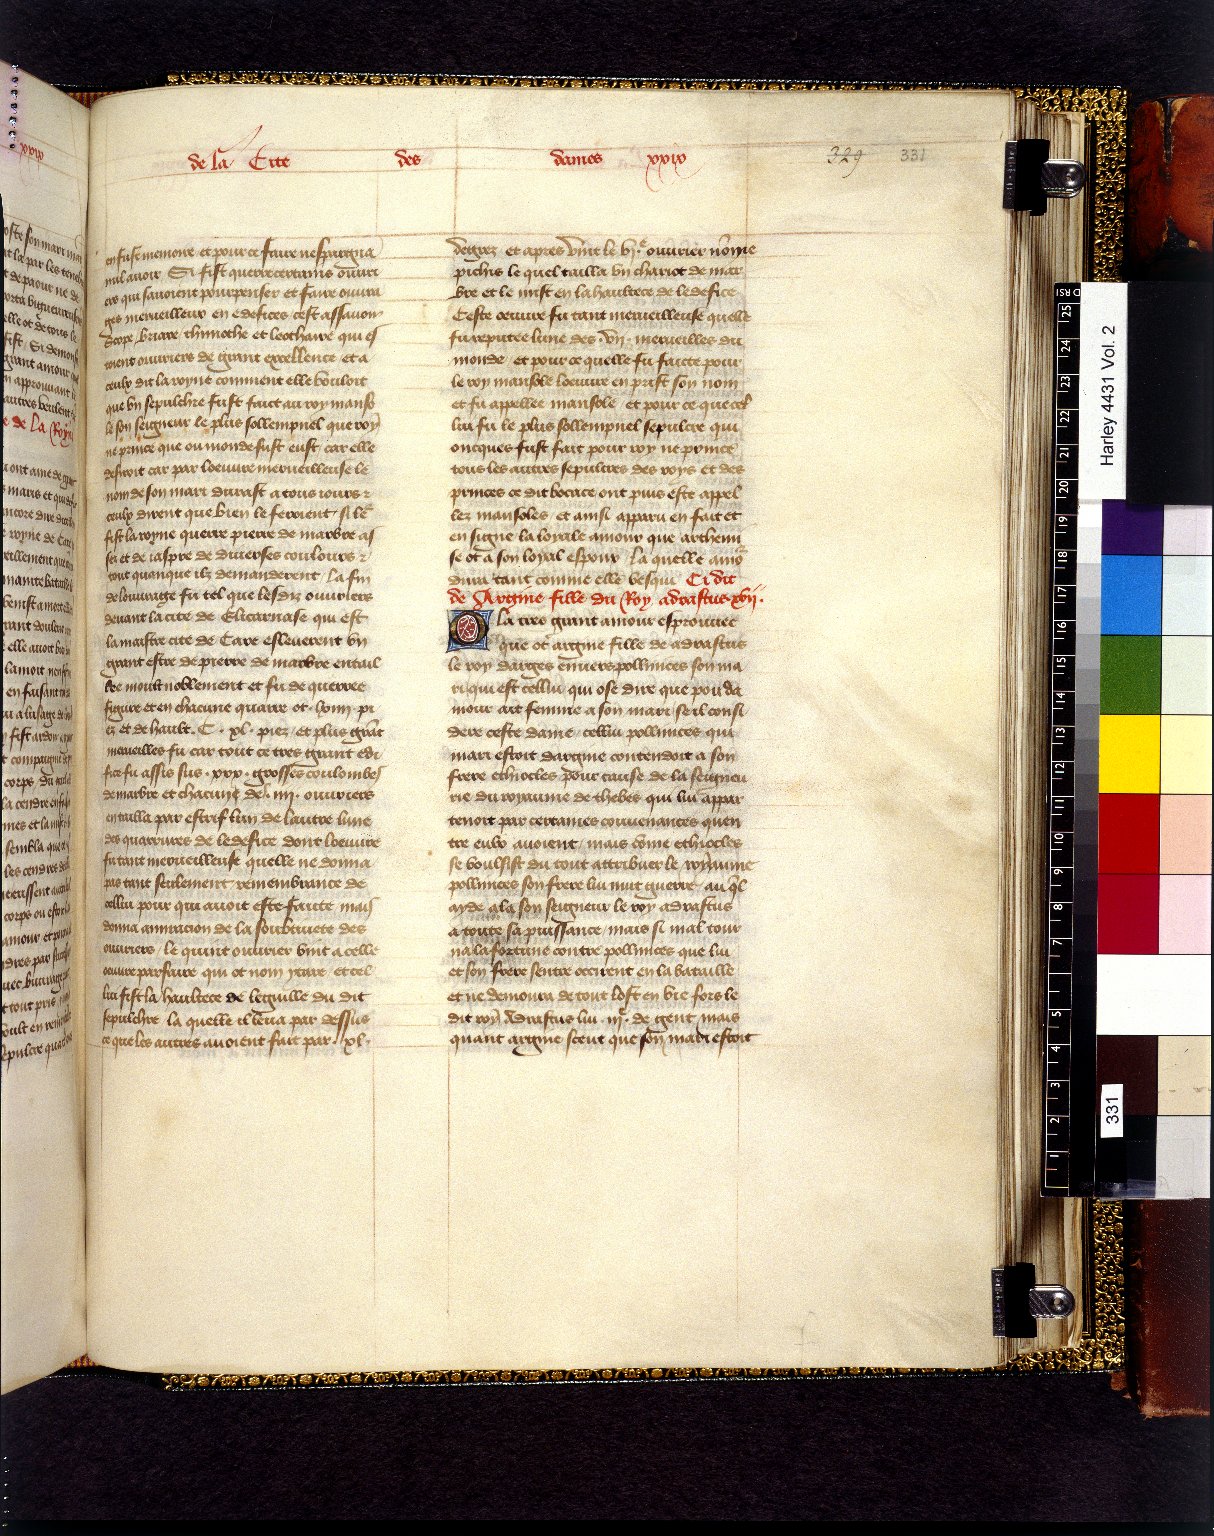 de la Cite des dames xxix
329 331
en fust memoire et pource faire nespargna
nul auoir Si fist querre certains ouuri
ers qui sauoient pourpenser et faire ouura
ges merueilleux en edefices cest assauoir
Scope briare thimothe et leothaire qui es
toient ouuriers de grant excellence et a
ceulx dit la royne comment elle vouloit
que vn sepulchre fust faict au roy manso
le son seigneur le plus sollempnel que roy
ne prince que ou monde fust eust car elle
desiroit car par loeuure merueilleuse le
nom de son mari durast a tous iours ⁊
ceulx dirent que bien le feroient si le
fist la royne querre pierre de marbre as
sez et de iaspre de diuerses coulours ⁊
tout quanque ilz demanderent la fin
de louurage fu tel que lesdiz ouuriers
deuant la cite de Elicarnase qui est
la maistre cite de Care esleuerent vn
grant estre de pierre de marbre entail
lee moult noblement et fu de querree
figure et en chacune quarre ot lxiiii pi
ez et de hault C xl piez et plus grant
merueilles fu car tout ce tres grant edi
fice fu assis sus xxx grosses coulombes
de marbre et chacune de iiii ouuriers
entailla par estrif lun de lautre lune
des quarrures de ledefice dont loeuure
fu tant merueilleuse quelle ne donna
pas tant seulement remembrance de
cellui pour qui auoit este faicte mais
donna amiracion de la soubtiuete des
ouuriers le quint ouurier vint a celle
oeuure parfaire qui ot nom ytare et cel
lui fist la haultece de leguille du dit
sepulchre la quelle il leua par dessus
ce que les autres auoient fait par xl
degrez et apres vint le vj.e ouurier nome
pichis le quel tailla vn chariot de mar
bre et le mist en la haultece de ledefice
Ceste oeuure fu tant merueilleuse quelle
fu reputee lune des vii merueilles du
monde et pour ce quelle fu faicte pour
le roy mansole loeuure en prist son nom
et fu appellee mansole et pour ce que cel
lui fu le plus sollempnel sepulcre qui
oncques fust fait pour roy ne prince
tous les autres sepulcres des roys et des
princes ce dit bocace ont puis este appel
lez mansoles et ainsi apparu en fait et
en signe la loyale amour que arthemi
se ot a son loyal espoux la quelle amor
dura tant comme elle vesqui Ci dit
de Argine fille du Roy adrastus xvii
O la tres grant amour esprouuee
que ot argine fille de adrastus
le roy darges enuers pollinices son ma
ri qui est cellui qui ose dire que pou da
mour ait femme a son mari se il consi
dere ceste dame cellui pollinices qui
mari estoit dargine contendoit a son
frere ethiocles pour cause de la seigneu
rie du royaume de thebes qui lui appar
tenoit par certaines couuenances quen
tre eulx auoient mais come ethiocles
se voulsist du tout attribuer le royaume
pollinices son frere lui mut guerre au quel
ayde ala son seigneur le roy adrastus
a toute sa puissance mais si mal tour
na la fortune contre pollinices que lui
et son frere sentre occirent en la bataille
et ne demoura de tout lost en vie fors le
dit roy Adrastus lui iij.e de gent mais
quant argine sceut que son mari estoit
Harley 4431 Vol. 2
331
25
24
23
22
21
20
19
18
17
16
15
14
13
12
11
10
9
8
7
6
5
4
3
2
1